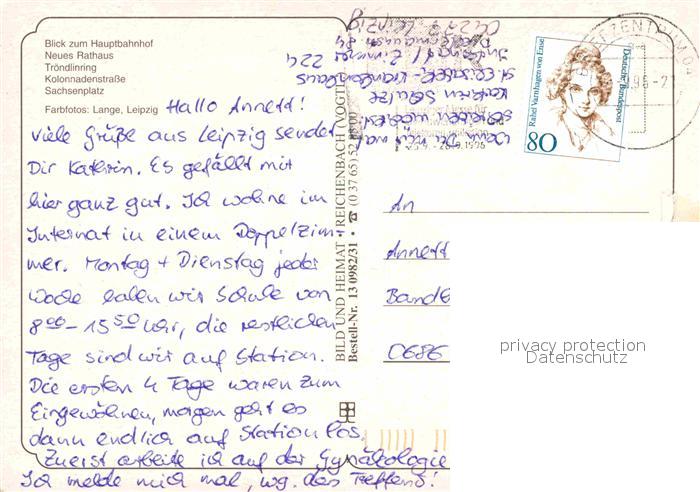 Blick zum Hauptbahnhof
Neues Rathaus
Tröndlinring
Kolonnadenstraße
Sachsenplatz
Farbfotos: Lange, Leipzig
Hallo Annett!
viele Grüße aus Leipzig sendet
Dir Kathrin. Es gefällt mir
hier ganz gut. Ich wohne im
Internat in einem Doppelzim-
mer. Montag + Dienstag jeder
Woche haben wir Schule von
8⁰⁰-15⁵⁰ Uhr, die restlichen
Tage sind wir auf Station.
Die ersten 4 Tage waren zum
Eingewöhnen, morgen geht es
dann endlich auf Station los.
Zuerst arbeite ich auf der Gynäkologie
Ich melde mich mal, wg. des Treffens!
Wenn Du mir mal
schreiben möchtest:
Schulze
St. Elisabeth-Krankenhaus
Internat / Zimmer 224
Leipzig
BILD UND HEIMAT • REICHENBACH (VOGTL
Bestell-Nr. 13 0982/31 • ☎ (0 37 65) 52
Deutsche Bundespost
Rahel Varnhagen von Ense
80
An
Annett
0686
privacy protection
Datenschutz